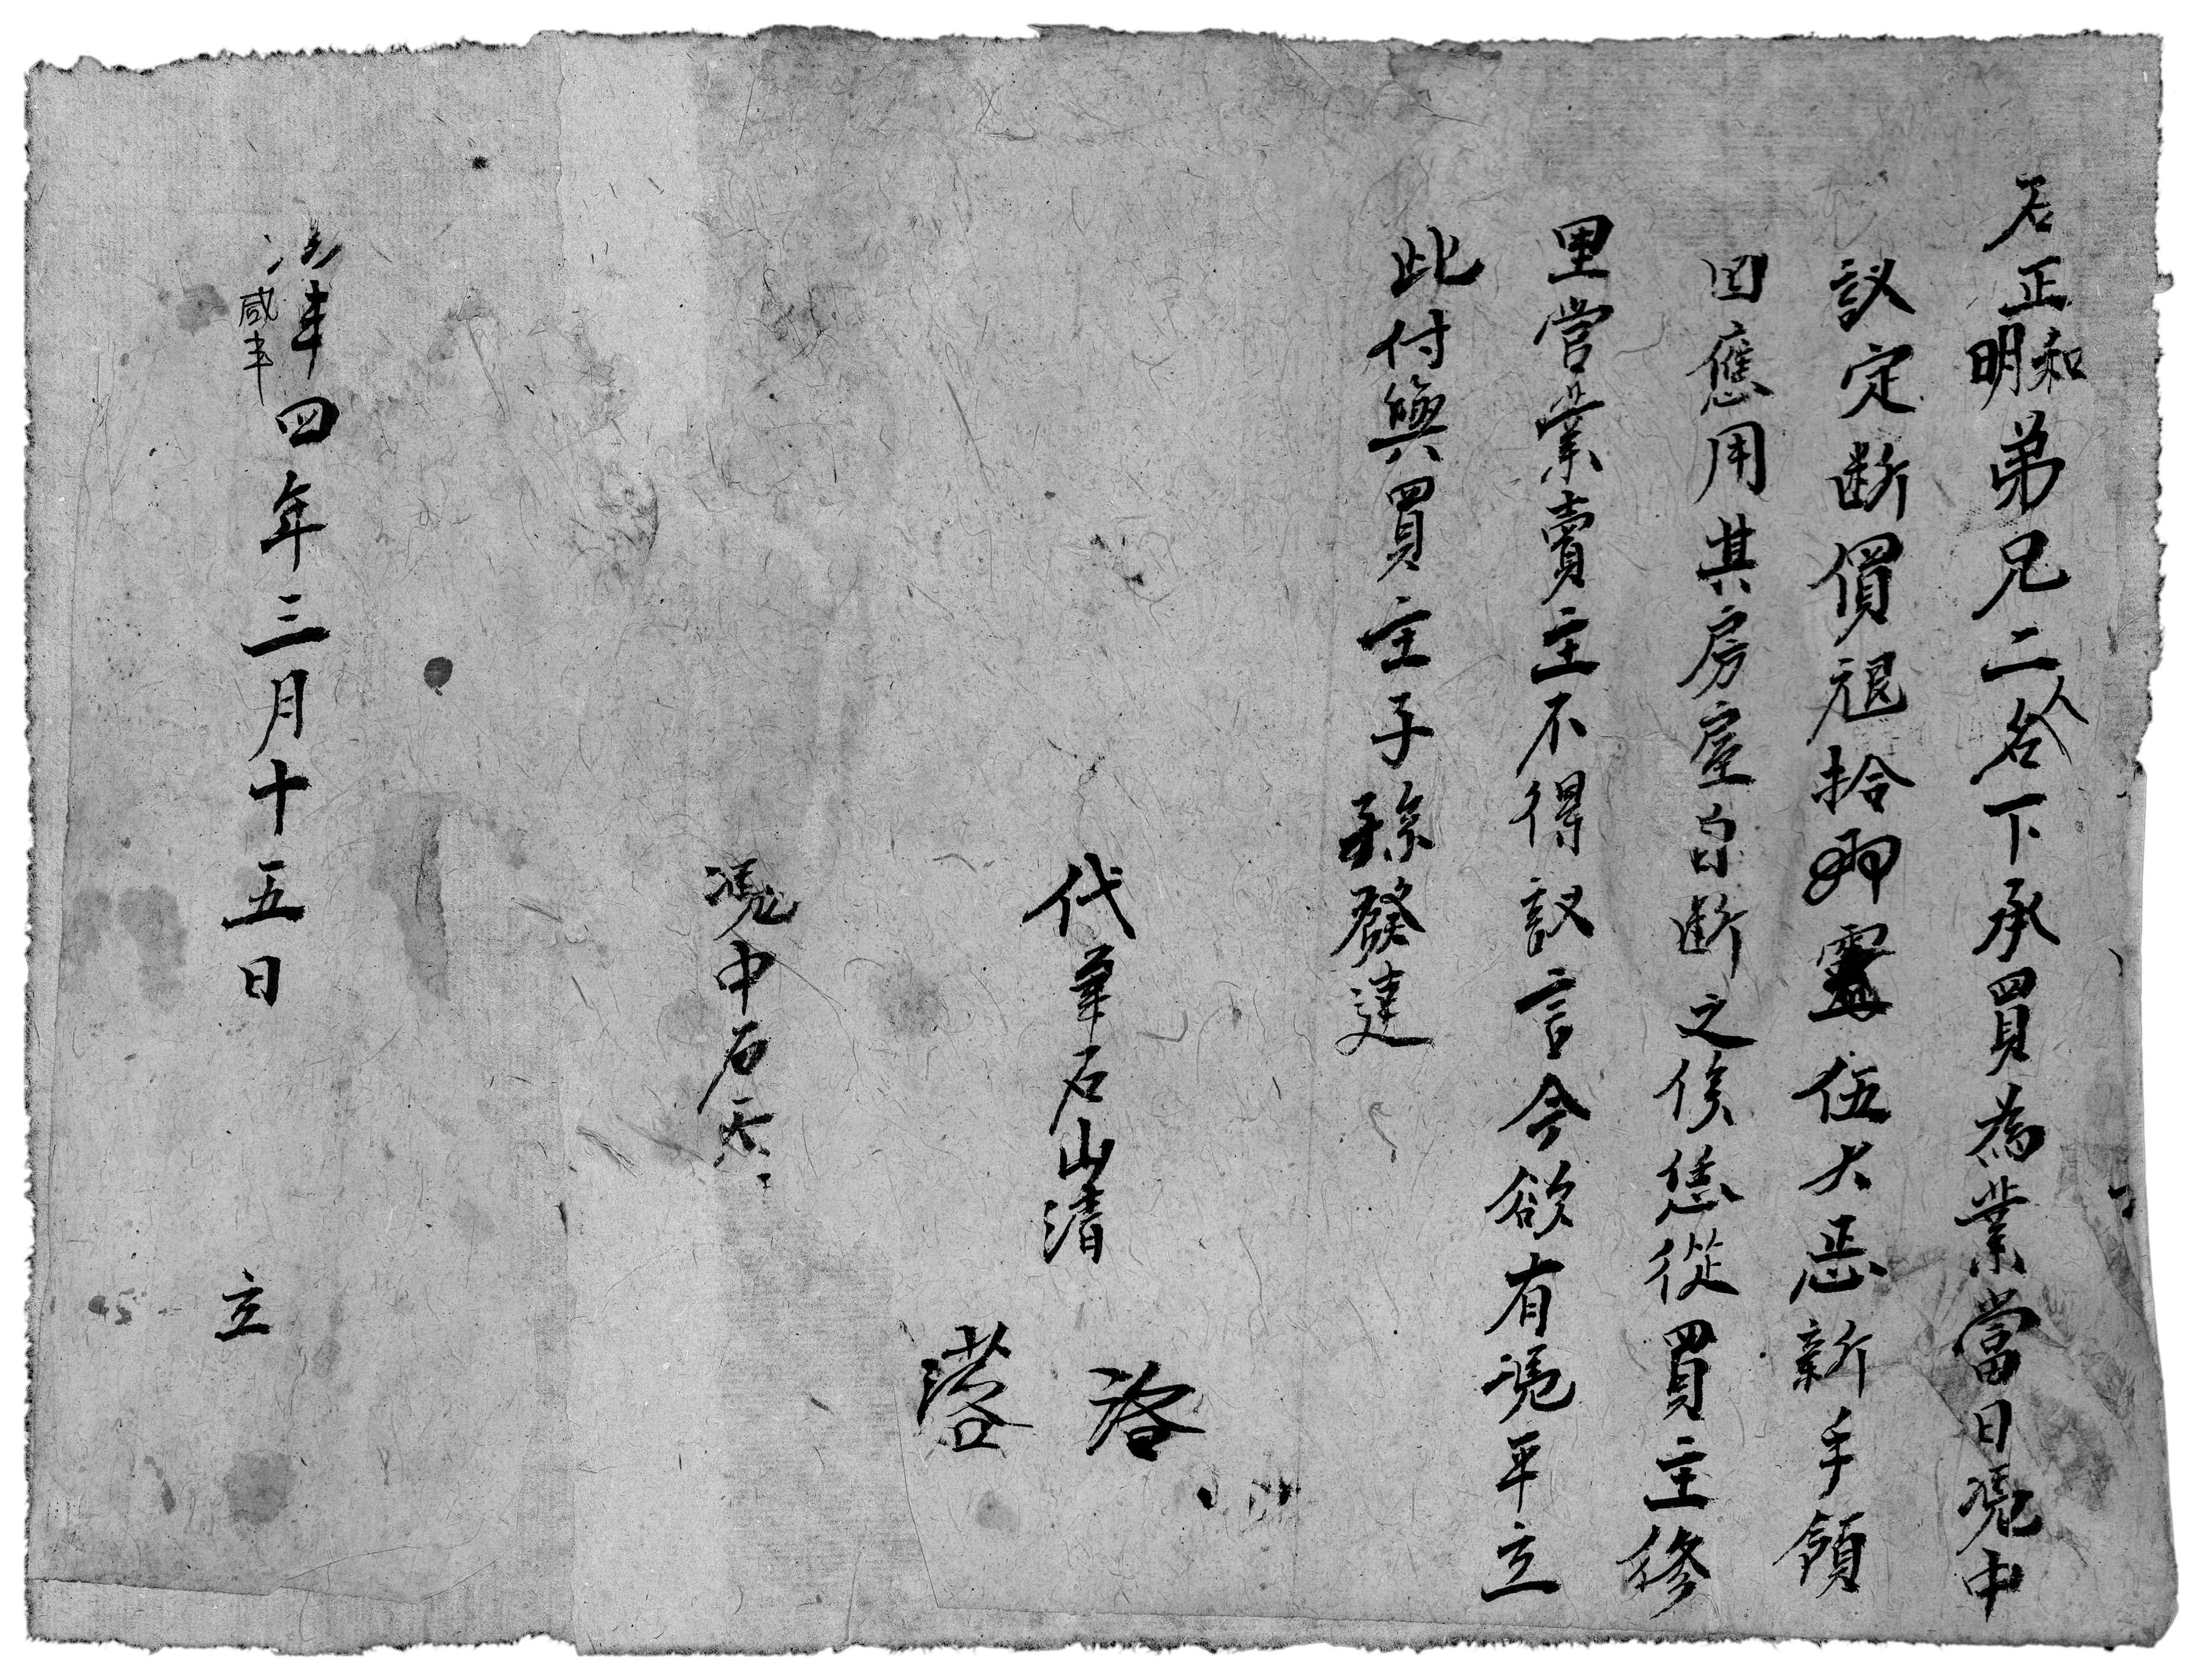 石正和明弟兄二人名下承買為業當日憑中
議定斷價艰拾兩零伍大恶新手領
回應用其房屋自断之倏恁從買主修
里當業賣主不得議言今欲有凴平立
此付與買主子孫發達
代筆石山清
凴中石天
四年三月十五日 立
咸丰